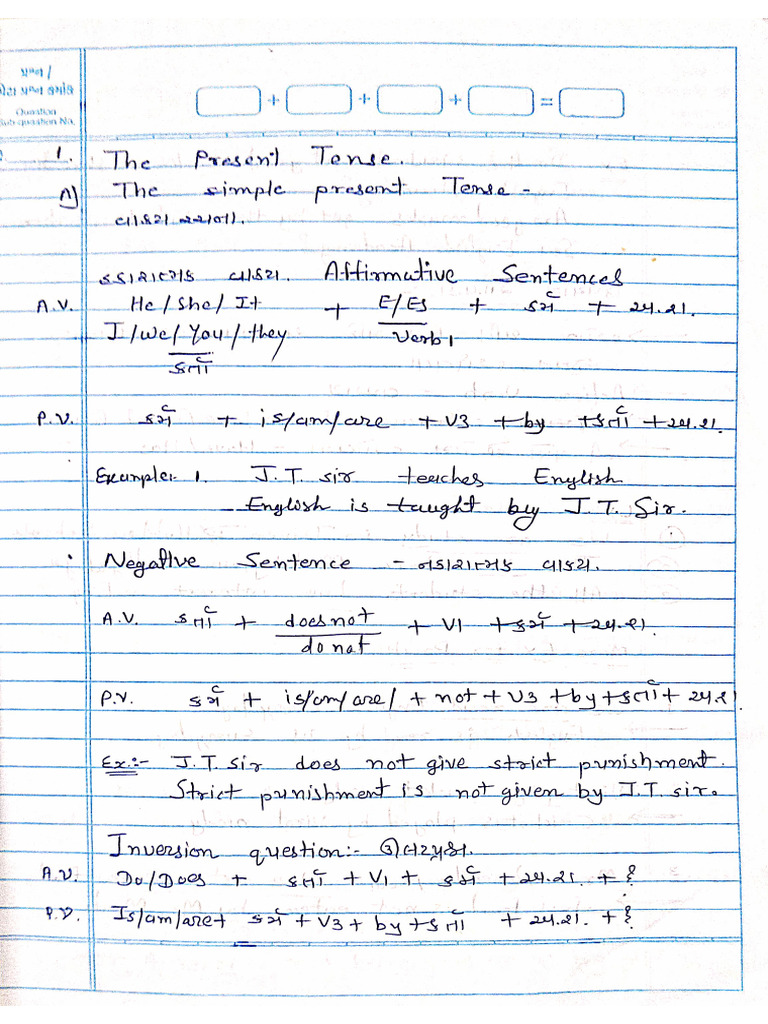 પ્રશ્ન /
પેટા પ્રશ્ન ક્રમાંક
Question
Sub-question No.
+ + + =
1. The Present Tense.
A) The simple present Tense -
વાક્ય રચના.
હકારાત્મક વાક્ય. Affirmative Sentences
A.V. He / She / It + E/Es + કર્મ + અ.શ.
I / we / You / they Verb 1
કર્તા
P.V. કર્મ + is/am/are + V3 + by + કર્તા + અ.શ.
Example:- 1. J.T. sir teaches English
English is taught by J.T. Sir.
• Negative Sentence - નકારાત્મક વાક્ય.
A.V. કર્તા + does not + V1 + કર્મ + અ.શ.
do not
P.V. કર્મ + is/am/are/ + not + V3 + by + કર્તા + અ.શ.
Ex:- J.T. sir does not give strict punishment.
Strict punishment is not given by J.T. sir.
Inversion question:-
A.V. Do/Does + કર્તા + V1 + કર્મ + અ.શ. + ?
P.V. Is/am/are + કર્મ + V3 + by + કર્તા + અ.શ. + ?